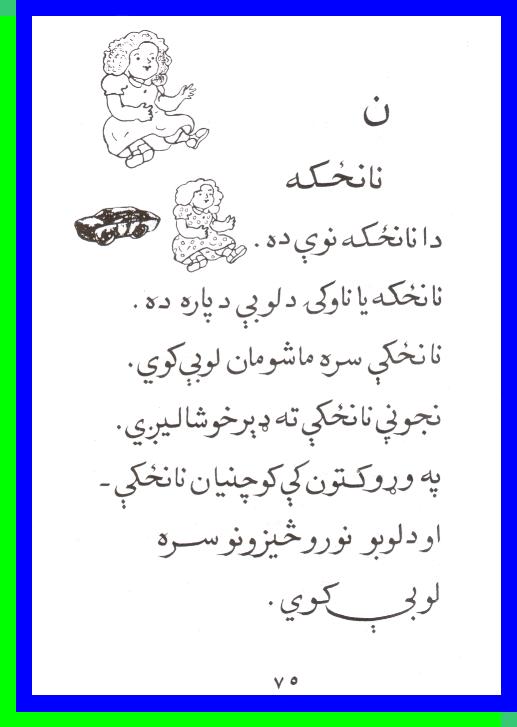 ن
نانځکه
دا نانځکه نوې ده .
نانځکه یا ناوکۍ د لوبې د پاره ده .
نانځکې سره ماشومان لوبې کوي.
نجونې نانځکې ته ډېر خوشالیږي.
په وړوکتون کې کوچنیان نانځکې -
او د لوبو نورو څیزونو سره
لوبې کوي .
۷۵